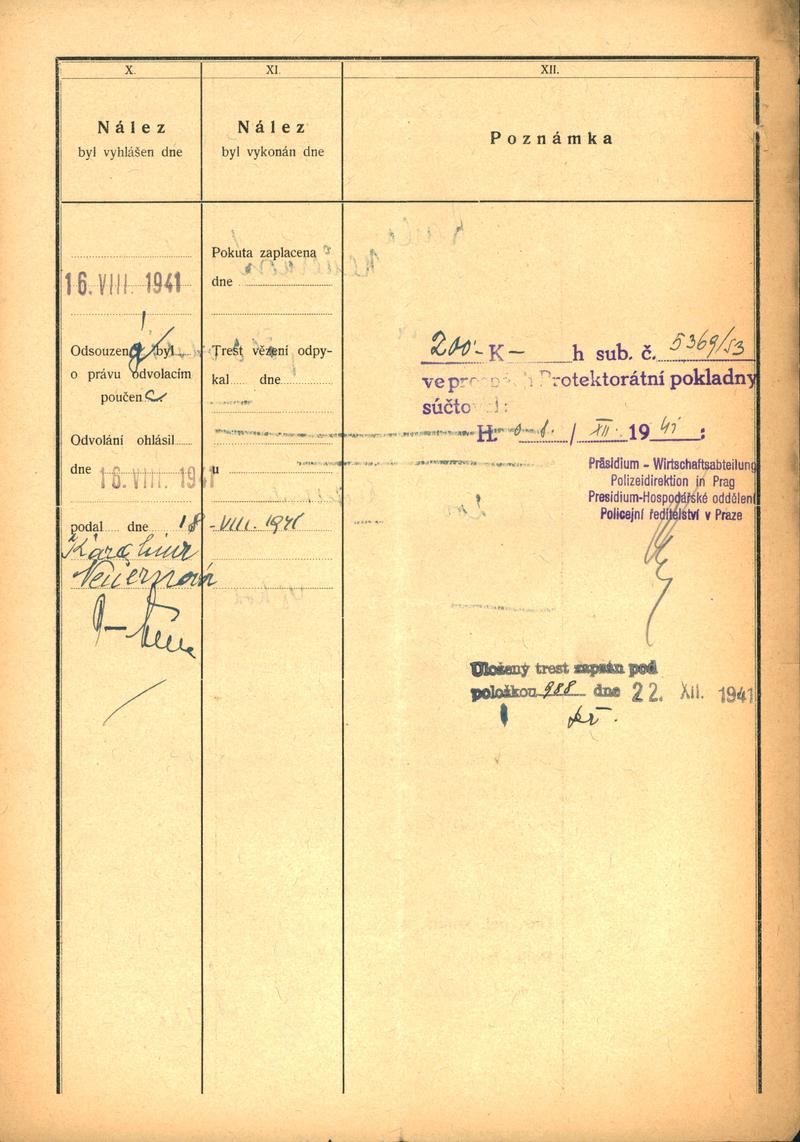 X.
Nález
byl vyhlášen dne
16. VIII. 1941
Odsouzená byl
o právu odvolacím
poučena
Odvolání ohlásil
dne 16. VIII. 1941
podal dne 18. VIII. 1941
Neuernová
XI.
Nález
byl vykonán dne
Pokuta zaplacena
dne
Trest vězení odpy-
kal dne
u
XII.
Poznámka
200.- K — h sub. č. 5369/53
ve prospěch Protektorátní pokladny
súčtov
H. / XII. 1941 :
Präsidium - Wirtschaftsabteilung
Polizeidirektion in Prag
Presidium-Hospodářské oddělení
Policejní ředitelství v Praze
Uložený trest zapsán pod
položkou 988 dne 22. XII. 1941